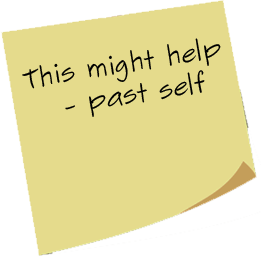 This might help
- past self